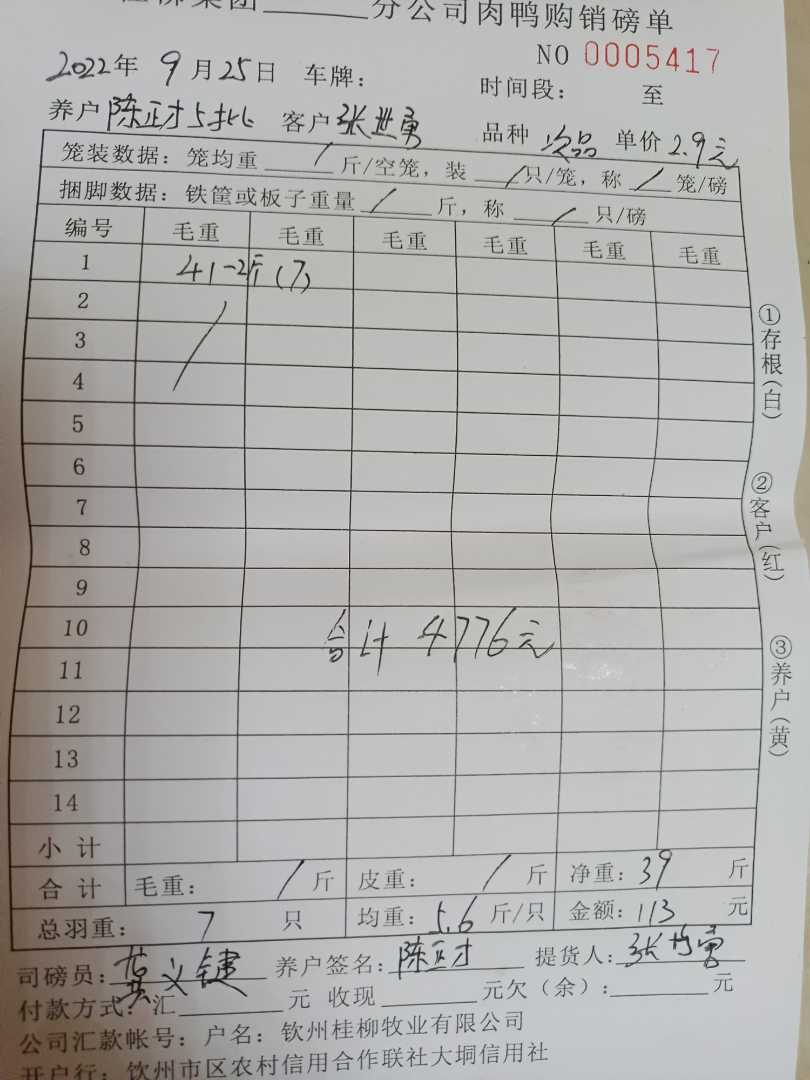 柳集团______分公司肉鸭购销磅单
NO 0005417
2022年 9月25日 车牌： 时间段： 至
养户 陈正才5批 客户 张世勇 品种 次品 单价 2.9元
笼装数据：笼均重 / 斤/空笼，装 / 只/笼，称 / 笼/磅
捆脚数据：铁筐或板子重量 / 斤，称 / 只/磅
编号 毛重 毛重 毛重 毛重 毛重 毛重
1 41-2斤(7)
2
3
4
5
6
7
8
9
10 合计 4776元
11
12
13
14
小计
合计 毛重： / 斤 皮重： / 斤 净重：39 斤
总羽重： 7 只 均重：5.6 斤/只 金额：113 元
司磅员：黄义键 养户签名：陈正才 提货人：张世勇
付款方式：汇______元 收现______元欠（余）：______元
公司汇款帐号：户名：钦州桂柳牧业有限公司
开户行：钦州市区农村信用合作联社大垌信用社
①存根（白）
②客户（红）
③养户（黄）